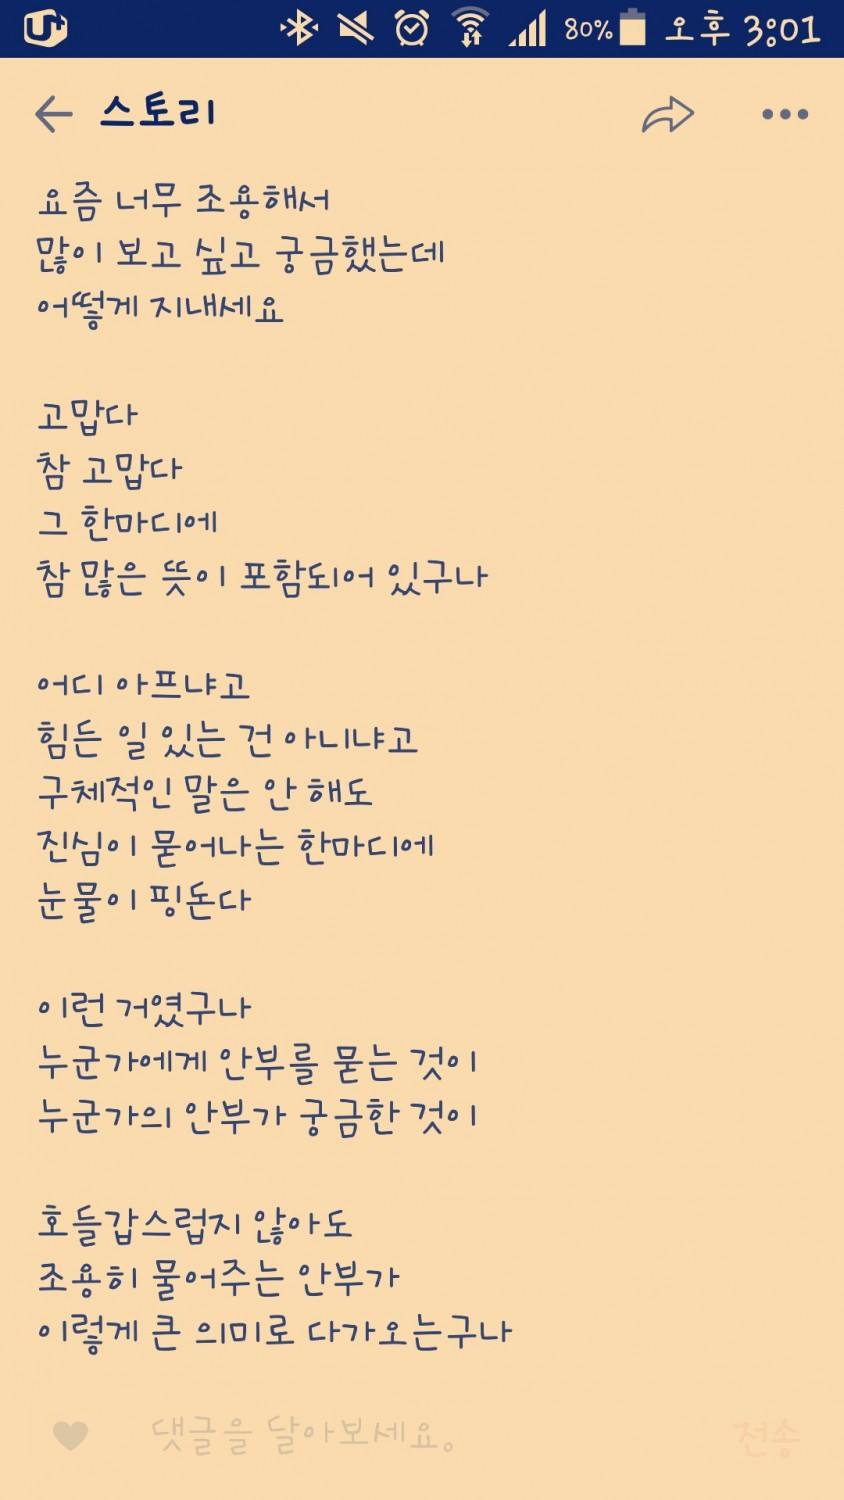 U+ 80% 오후 3:01
스토리
요즘 너무 조용해서
많이 보고 싶고 궁금했는데
어떻게 지내세요
고맙다
참 고맙다
그 한마디에
참 많은 뜻이 포함되어 있구나
어디 아프냐고
힘든 일 있는 건 아니냐고
구체적인 말은 안 해도
진심이 묻어나는 한마디에
눈물이 핑돈다
이런 거였구나
누군가에게 안부를 묻는 것이
누군가의 안부가 궁금한 것이
호들갑스럽지 않아도
조용히 물어주는 안부가
이렇게 큰 의미로 다가오는구나
댓글을 달아보세요. 전송